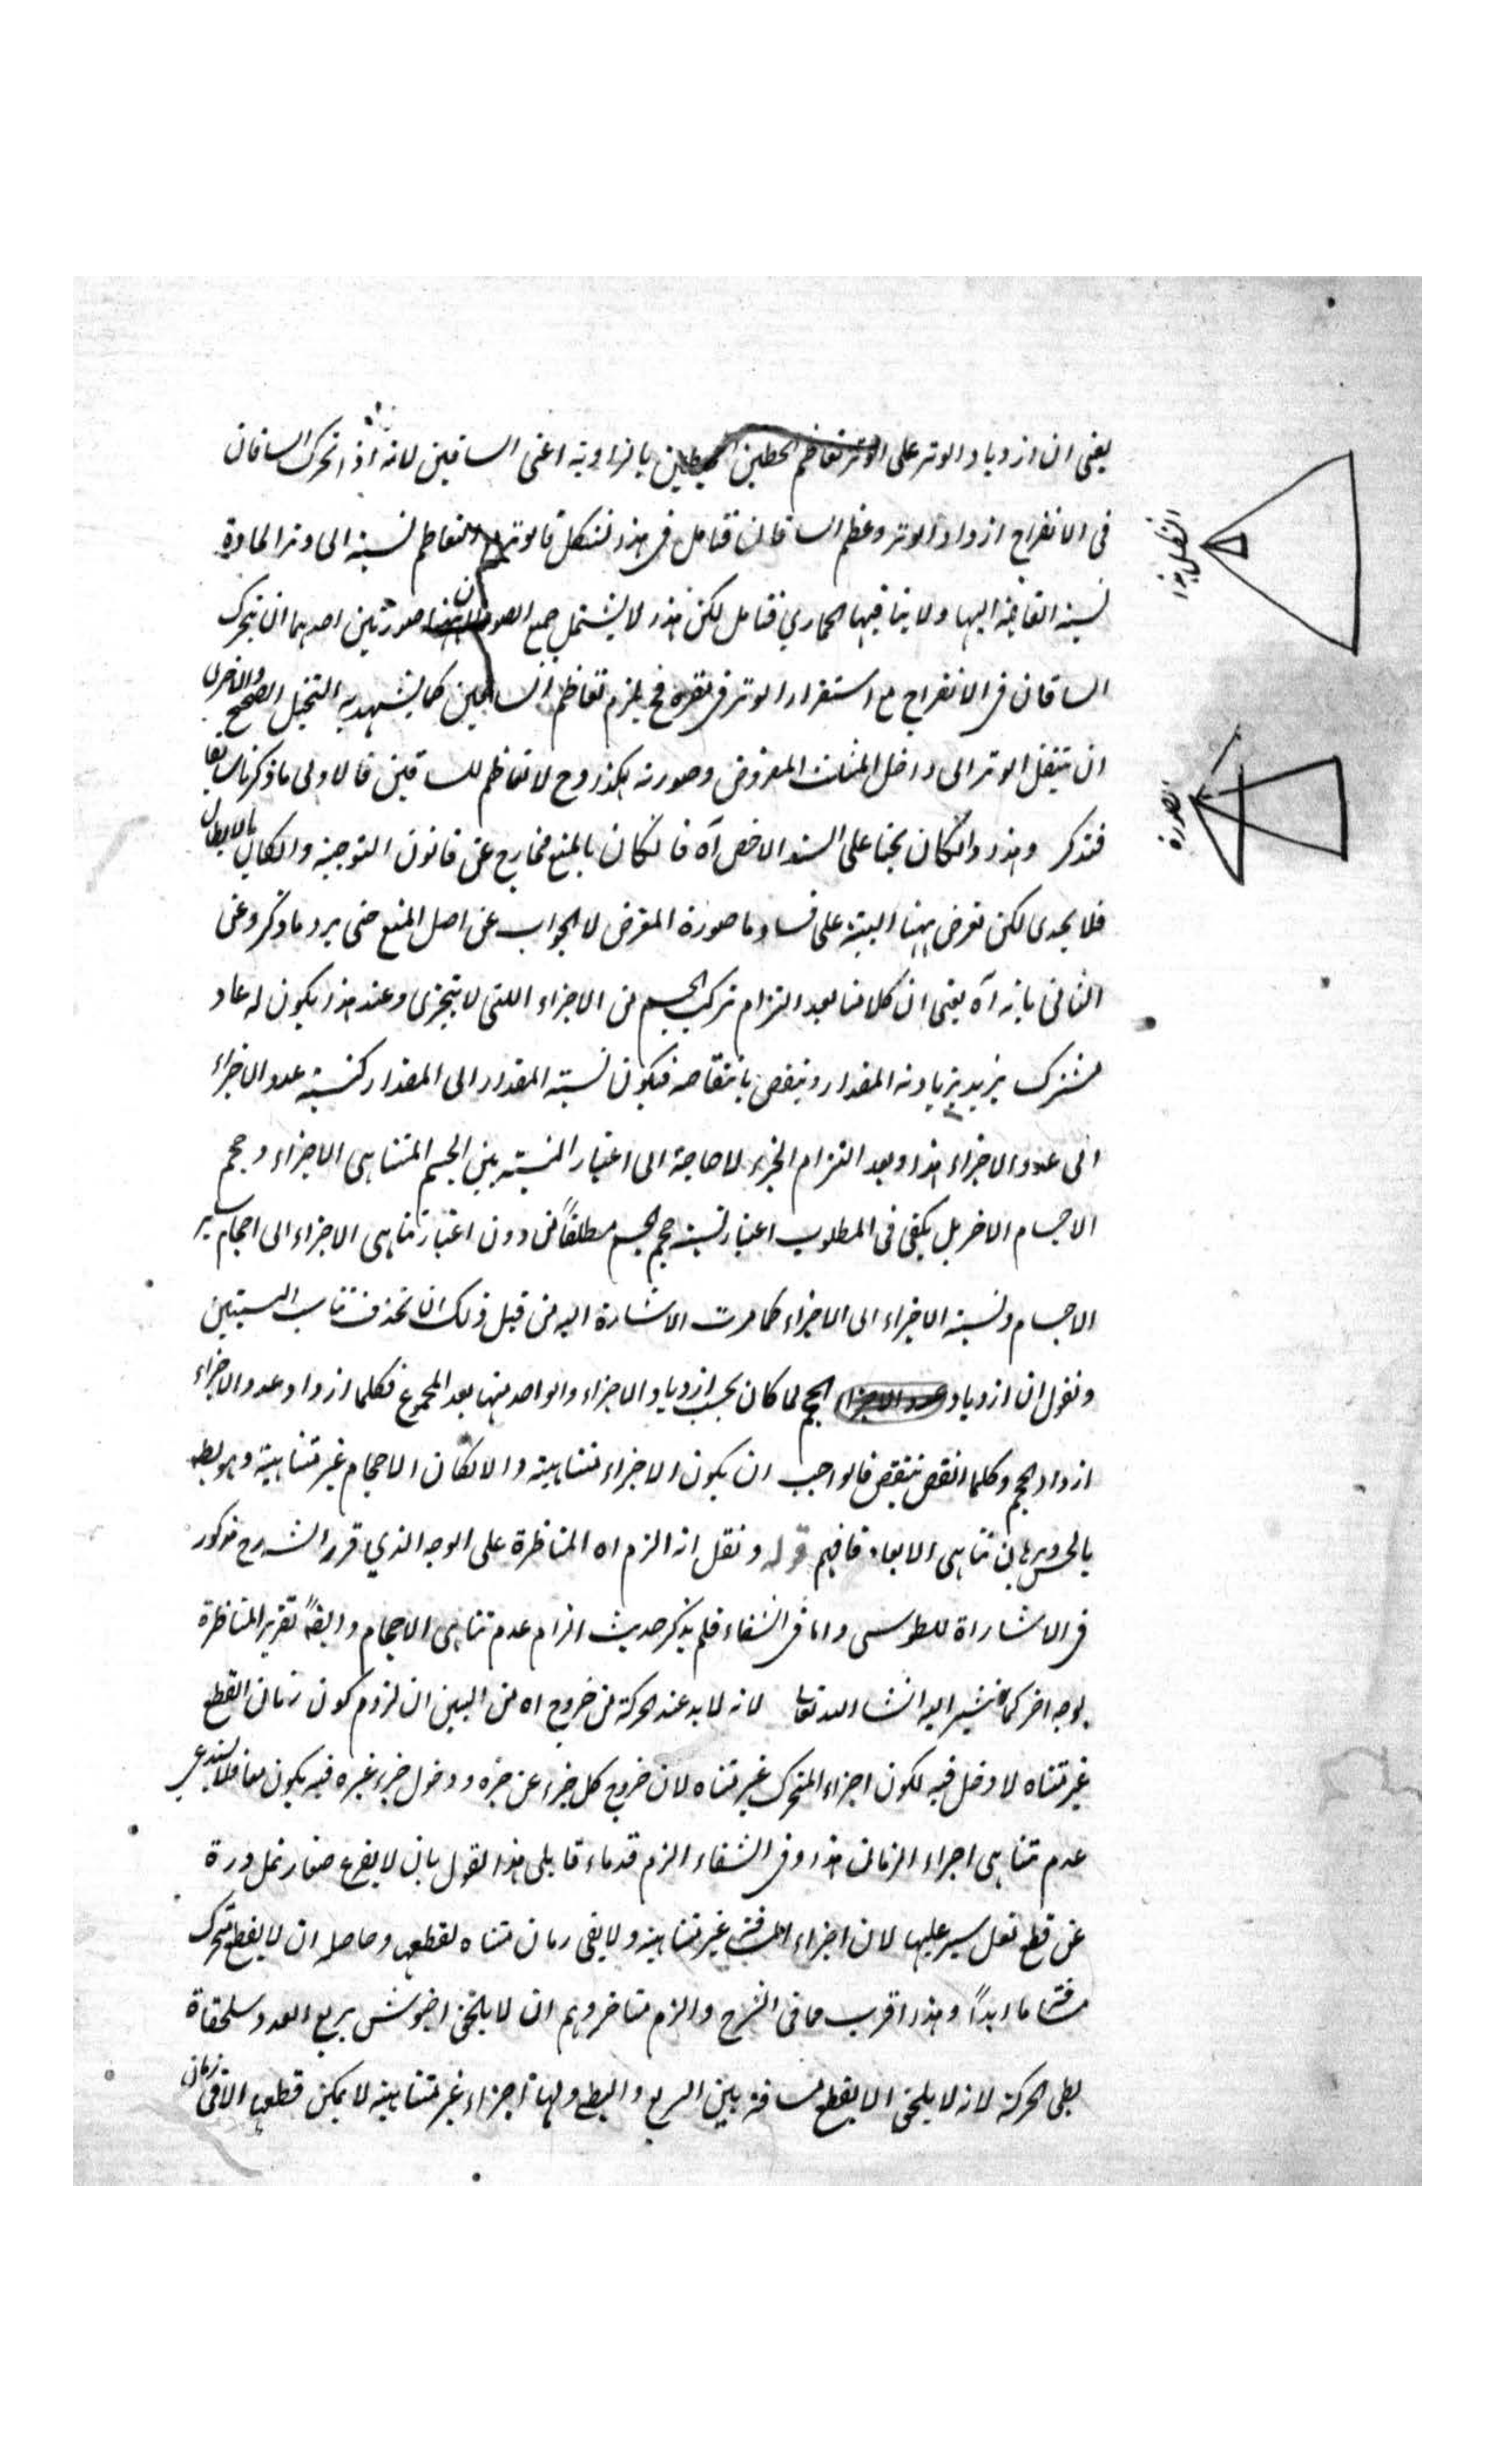 يعنى ان ازدياد الوتر على الوتر تعاظم الخطين المحيطين بالزاوية اعنى الساقين لانه اذا تحرك الساقان
فى الانفراج ازداد الوتر وعظم الساقان فتامل فى هذا الشكل فالوتر والتعاظم نسبته الى وتر الحادة
نسبة القائمة اليها ولا ينافيها الحمارى فتامل لكن هذا لا يشتمل جميع الصور لان صورتين احدهما ان يتحرك
الساقان فى الانفراج مع استقرار الوتر فى مقره فح يلزم تعاظم الساقين كما يشهد به التخيل الصحيح والاخرى
ان ينتقل الوتر الى داخل المثلث المفروض وصورته هكذا وح لا تعاظم للساقين فالاولى ما ذكرنا سابقا
فتذكر وهذا وان كان بحثا على السند الاخص آه فان كان بالمنع فخارج عن قانون التوجيه وان كان بالابطال
فلا يجدى لكن تعرض ههنا البتة على فساد ما صوره المعرض لا الجواب عن اصل المنع حتى يرد ما ذكر وعن
الثانى بانه آه يعنى ان كلامنا بعد التزام تركب الجسم من الاجزاء اللتى لا يتجزى وعند هذا يكون له عاد
مشترك يزيد بزيادته المقدار وينقص بانتقاصه فيكون نسبة المقدار الى المقدار كنسبة عدد الاجزاء
الى عدد الاجزاء هذا وبعد التزام الجزء لا حاجة الى اعتبار النسبة بين الجسم المتناهى الاجزاء وحجم
الاجسام الاخر بل يكفى فى المطلوب اعتبار نسبة حجم الجسم مطلقاً من دون اعتبار تناهى الاجزاء الى احجام سائر
الاجسام ونسبة الاجزاء الى الاجزاء كما مرت الاشارة اليه من قبل ذلك ان تحذف تناسب النسبتين
ونقول ان ازدياد الحجم لما كان بحسب ازدياد الاجزاء والواحد منها بعد المجموع فكلما ازداد عدد الاجزاء
ازداد الحجم وكلما انقص ينتقص فالواجب ان يكون الاجزاء متناهية والا لكان الاحجام غير متناهية وهو بط
بالحس وبرهان تناهى الابعاد فافهم قوله ونقل انه الزم اه المناظرة على الوجه الذي قرر الشارح مذكور
فى الاشاراة للطوسى واما فى الشفاء فلم يذكر حديث الزام عدم تناهى الاحجام وايضاً تقرير المناظرة
بوجه اخر كما نشير اليه انشاء الله تعالى لانه لا بد عند الحركة من خروج اه من البين ان لزوم كون زمان القطع
غير متناه لا دخل فيه لكون اجزاء المتحرك غير متناه لان خروج كل جزء عن حيزه ودخول جزء غيره فيه يكون معا فلا يستدعى
عدم تناهى اجزاء الزمان هذا وفى الشفاء الزم قدماء قابلى هذا القول بان لا يفرغ صغار نمل ورة
عن قطع نعل يسير عليها لان اجزاء المسافة غير متناهية ولا يفى زمان متناه لقطعها وحاصله ان لا يقطع متحرك
مسافة ما ابداً وهذا اقرب مما فى الشرح والزم متاخروهم ان لا يلحق سريع العدو سلحفاة
بطى الحركة لانه لا يلحق الا بقطع مسافة بين السريع والبطى ولها اجزاء غير متناهية لا يمكن قطعها الا فى زمان
الشكل هذا
الصورة